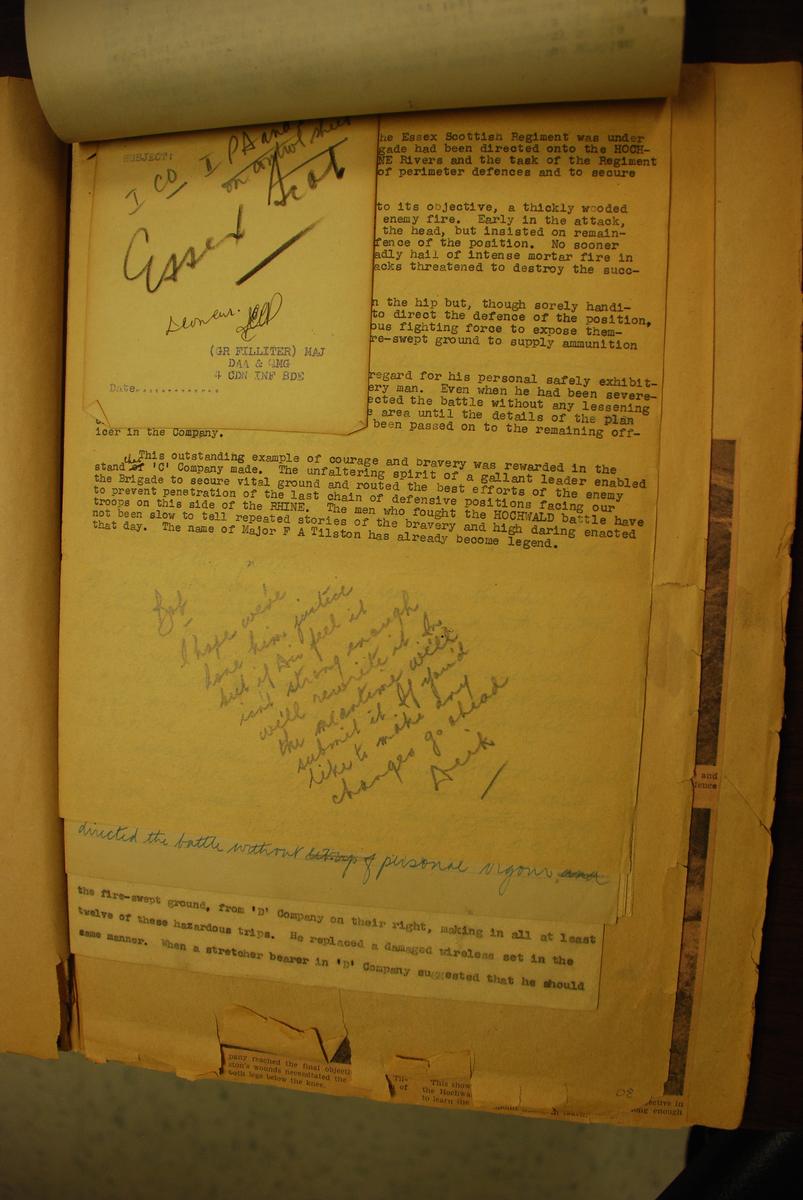 SUBJECT:
I CO I PA and
on control sheet
Essex Scot
(GR FILLITER) MAJ
DAA & QMG
4 CDN INF BDE
Date.............
he Essex Scottish Regiment was under
gade had been directed onto the HOCH-
NE Rivers and the task of the Regiment
of perimeter defences and to secure
to its objective, a thickly wooded
enemy fire. Early in the attack,
the head, but insisted on remain-
fence of the position. No sooner
adly hail of intense mortar fire in
acks threatened to destroy the succ-
n the hip but, though sorely handi-
to direct the defence of the position,
ous fighting force to expose them-
re-swept ground to supply ammunition
regard for his personal safely exhibit-
ery man. Even when he had been severe-
ected the battle without any lessening
e area until the details of the plan
been passed on to the remaining off-
icer in the Company.
This outstanding example of courage and bravery was rewarded in the
stand 'C' Company made. The unfaltering spirit of a gallant leader enabled
the Brigade to secure vital ground and routed the best efforts of the enemy
to prevent penetration of the last chain of defensive positions facing our
troops on this side of the RHINE. The men who fought the HOCHWALD battle have
not been slow to tell repeated stories of the bravery and high daring enacted
that day. The name of Major F A Tilston has already become legend.
I hope we've
done him justice
but if Div feel it
isn't strong enough
we'll rewrite it. In
the meantime we'll
submit it. If you'd
like to make any
changes go ahead
directed the battle without personal vigour and
the fire-swept ground, from 'D' Company on their right, making in all at least
twelve of these hazardous trips. He replaced a damaged wireless set in the
same manner. When a stretcher bearer in 'D' Company suggested that he should
pany reached the final objecti
ston's wounds necessitated the
both legs below the knee.
This show
of the Hochwa
to learn the
and
ective in
ong enough